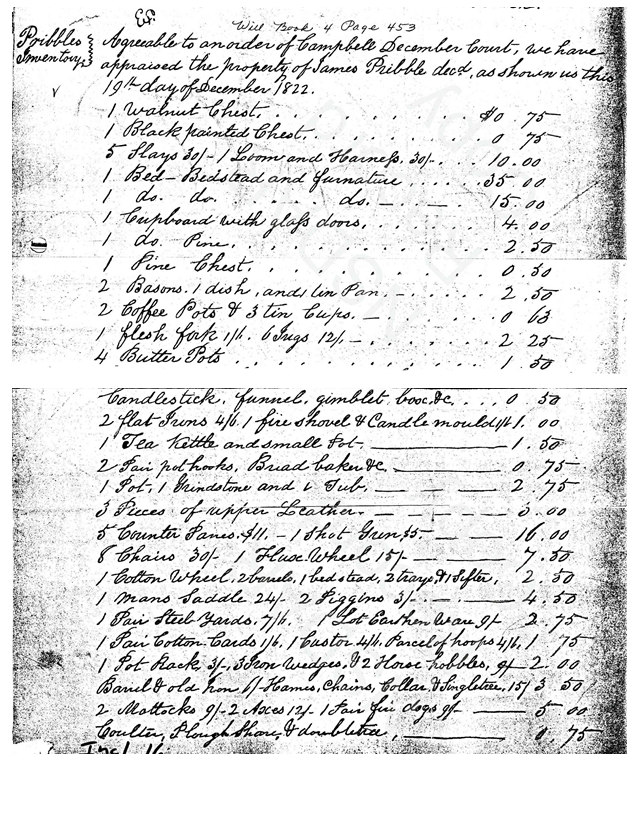 Will Book 4 Page 453
Pribbles Inventory
Agreeable to an order of Campbell December Court, we have
appraised the property of James Pribble decd, as shown us this
19th day of December 1822.
1 Walnut Chest. . . . . . . . . . $0.75
1 Black painted Chest. . . . . . . . 0 75
5 Slays 30/- 1 Loom and Harness. 30/- . . 10.00
1 Bed - Bedstead and furnature . . . . 35.00
1 do. do. . . . . . do. - . - . 15.00
1 Cupboard with glass doors. . . . . . 4.00
1 do. Pine. . . . . . . . . . 2.50
1 Pine Chest. . . . . . . . . . 0.50
2 Basons. 1 dish, and 1 tin Pan. - . . . . 2.50
2 Coffee Pots & 3 tin Cups. - . . . . . 0 63
1 flesh fork 1/6. 6 Jugs 12/. - . . . . . 2 25
4 Butter Pots . . . . . . . . . . 1 50
Candlestick, funnel, gimblet, box, &c. . . . 0.50
2 flat Irons 4/6. 1 fire shovel & Candle mould 1/6 1.00
1 Tea Kettle and small Pot. ——— 1.50
2 Pair pot hooks, Bread baker &c. ——— 0.75
1 Pot, 1 Grindstone and 1 Tub. — — — 2.75
3 Pieces of upper Leather. — — — — 3.00
5 Counter Panes. $11. - 1 Shot Gun $5. — — 16.00
8 Chairs 30/- 1 Flax Wheel 15/- — — 7.50
1 Cotton Wheel, 2 barrels, 1 bedstead, 2 trays, & 1 Sifter, 2.50
1 mans Saddle 24/- 2 Piggins 3/- — — 4.50
1 Pair Steel Yards, 7/6. 1 Lot Earthen Ware 9/- 2.75
1 Pair Cotton Cards 1/6, 1 Castor 4/6, Parcel of hoops 4/6, 1 75
1 Pot Rack 3/-, 3 Iron Wedges, & 2 Horse hobbles, 9/- 2.00
Barrel & old Iron 6/- Hames, Chains, Collar, & Singletree, 15/ 3.50
2 Mattocks 9/- 2 Axes 12/- 1 Pair fire dogs 9/- — 5 00
Coulter, Plough Share, & doubletree, ——— 0.75